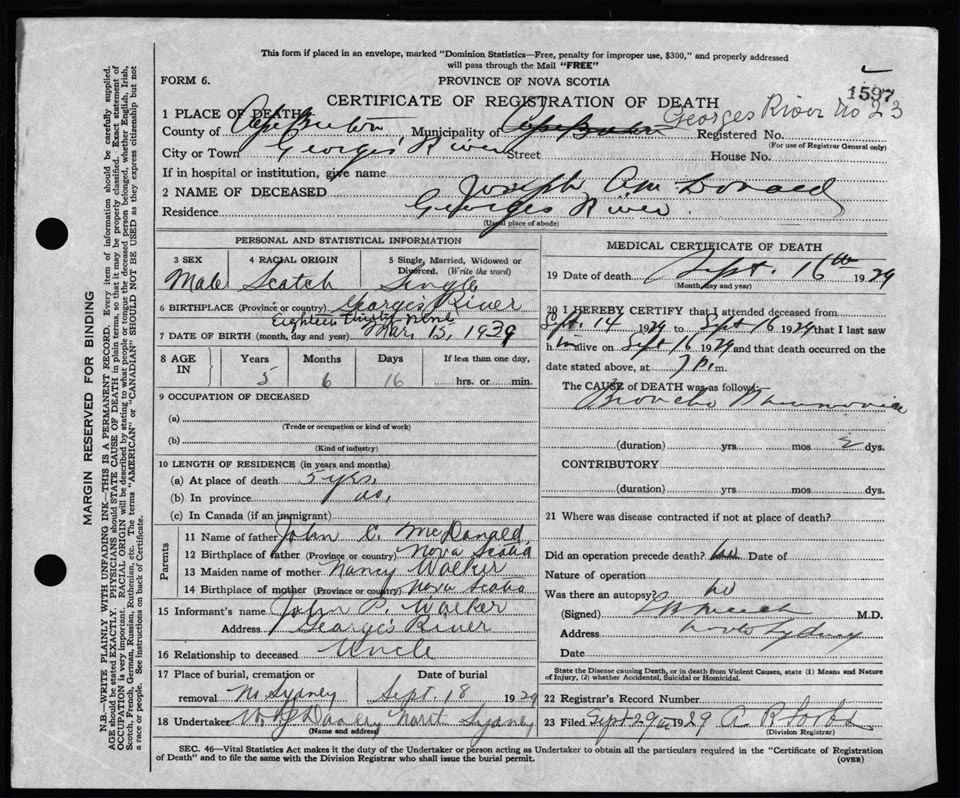 This form if placed in an envelope, marked "Dominion Statistics—Free, penalty for improper use, $300," and properly addressed
will pass through the Mail "FREE"
FORM 6.
PROVINCE OF NOVA SCOTIA
1597
CERTIFICATE OF REGISTRATION OF DEATH
Georges River No 23
1 PLACE OF DEATH
County of Cape Breton, Municipality of Cape Breton Registered No.
(For use of Registrar General only)
City or Town Georges River Street House No.
If in hospital or institution, give name
2 NAME OF DECEASED Joseph A. McDonald
Residence Georges River.
(Usual place of abode)
PERSONAL AND STATISTICAL INFORMATION
3 SEX 4 RACIAL ORIGIN 5 Single, Married, Widowed or Divorced. (Write the word)
Male Scotch Single
6 BIRTHPLACE (Province or country) Georges River
7 DATE OF BIRTH (month, day and year) Mar. 15, 1939
8 AGE IN Years Months Days If less than one day,
5 6 16 hrs. or min.
9 OCCUPATION OF DECEASED
(a)
(Trade or occupation or kind of work)
(b)
(Kind of industry)
10 LENGTH OF RESIDENCE (in years and months)
(a) At place of death 5 yrs.
(b) In province do.
(c) In Canada (if an immigrant)
Parents
11 Name of father John C. McDonald
12 Birthplace of father (Province or country) Nova Scotia
13 Maiden name of mother Nancy Walker
14 Birthplace of mother (Province or country) Nova Scotia
15 Informant's name John P. Walker
Address Georges River
16 Relationship to deceased Uncle
17 Place of burial, cremation or removal No. Sydney Date of burial Sept. 18 1929
18 Undertaker North Sydney
(Name and address)
MEDICAL CERTIFICATE OF DEATH
19 Date of death Sept. 16th 1929
(Month, day and year)
20 I HEREBY CERTIFY that I attended deceased from
Sept. 14 1929 to Sept 16 1929 that I last saw
him alive on Sept 16 1929 and that death occurred on the
date stated above, at 7 p.m.
The CAUSE of DEATH was as follows:
Broncho Pneumonia
(duration) yrs. mos 2 dys.
CONTRIBUTORY
(duration) yrs. mos. dys.
21 Where was disease contracted if not at place of death?
Did an operation precede death? no Date of
Nature of operation
Was there an autopsy? no
(Signed) M.D.
Address North Sydney
Date
State the Disease causing Death, or in death from Violent Causes, state (1) Means and Nature
of Injury, (2) whether Accidental, Suicidal or Homicidal.
22 Registrar's Record Number
23 Filed Sept 29 1929
(Division Registrar)
SEC. 46—Vital Statistics Act makes it the duty of the Undertaker or person acting as Undertaker to obtain all the particulars required in the "Certificate of Registration
of Death" and to file the same with the Division Registrar who shall issue the burial permit.
(OVER)
MARGIN RESERVED FOR BINDING
N.B.—WRITE PLAINLY WITH UNFADING INK—THIS IS A PERMANENT RECORD. Every item of information should be carefully supplied.
AGE should be stated EXACTLY. PHYSICIANS should STATE CAUSE OF DEATH in plain terms, so that it may be properly classified. Exact statement of
OCCUPATION is very important. RACIAL ORIGIN will be described by stating to what people or tongue the deceased person belonged, whether English, Irish,
Scotch, French, German, Russian, Ruthenian, etc. The terms "AMERICAN" or "CANADIAN" SHOULD NOT BE USED as they express citizenship but not
a race or people. See instructions on back of Certificate.